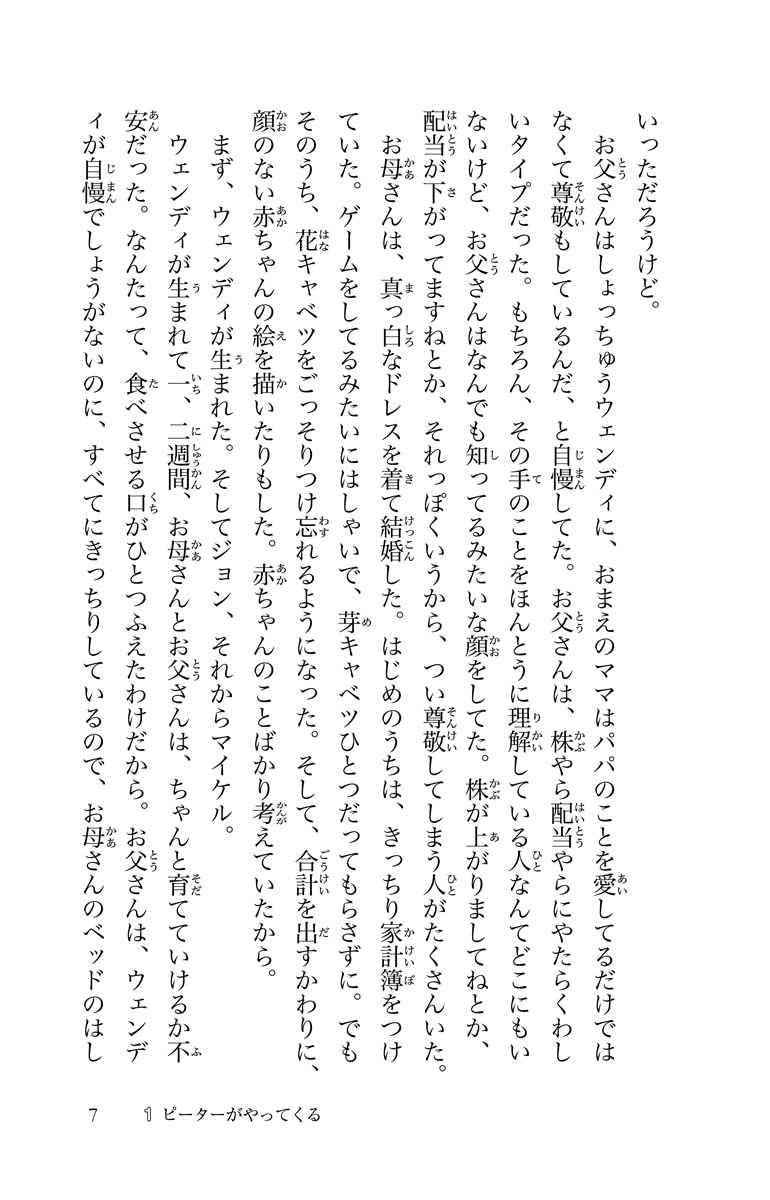 いっただろうけど。
お父さんはしょっちゅうウェンディに、おまえのママはパパのことを愛してるだけでは
なくて尊敬もしているんだ、と自慢してた。お父さんは、株やら配当やらにやたらくわし
いタイプだった。もちろん、その手のことをほんとうに理解している人なんてどこにもい
ないけど、お父さんはなんでも知ってるみたいな顔をしてた。株が上がりましてねとか、
配当が下がってますねとか、それっぽくいうから、つい尊敬してしまう人がたくさんいた。
お母さんは、真っ白なドレスを着て結婚した。はじめのうちは、きっちり家計簿をつけ
ていた。ゲームをしてるみたいにはしゃいで、芽キャベツひとつだってもらさずに。でも
そのうち、花キャベツをごっそりつけ忘れるようになった。そして、合計を出すかわりに、
顔のない赤ちゃんの絵を描いたりもした。赤ちゃんのことばかり考えていたから。
まず、ウェンディが生まれた。そしてジョン、それからマイケル。
ウェンディが生まれて一、二週間、お母さんとお父さんは、ちゃんと育てていけるか不
安だった。なんたって、食べさせる口がひとつふえたわけだから。お父さんは、ウェンデ
ィが自慢でしょうがないのに、すべてにきっちりしているので、お母さんのベッドのはし
7 1 ピーターがやってくる